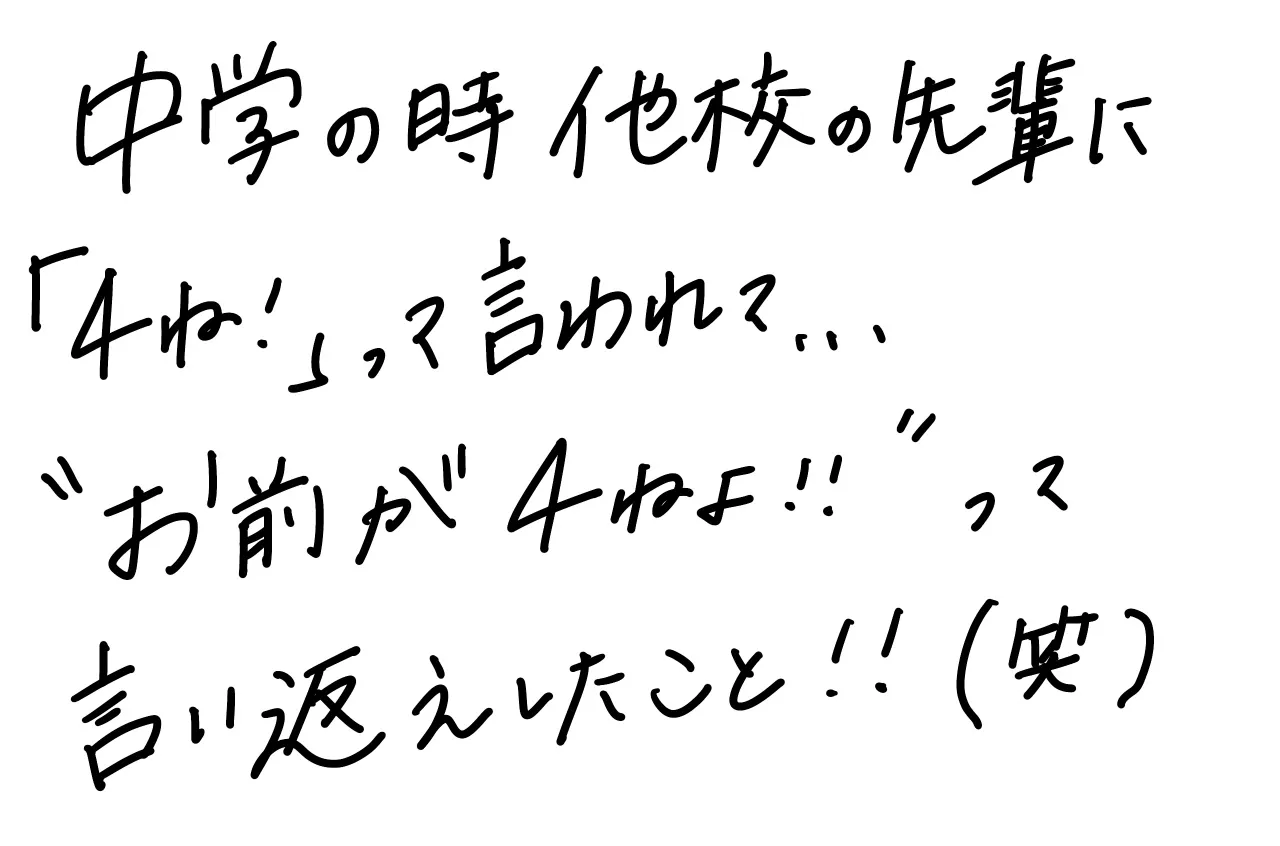 中学の時他校の先輩に
「4ね!」って言われて...
〝お前が4ねよ!!〟って
言い返えしたこと!!(笑)